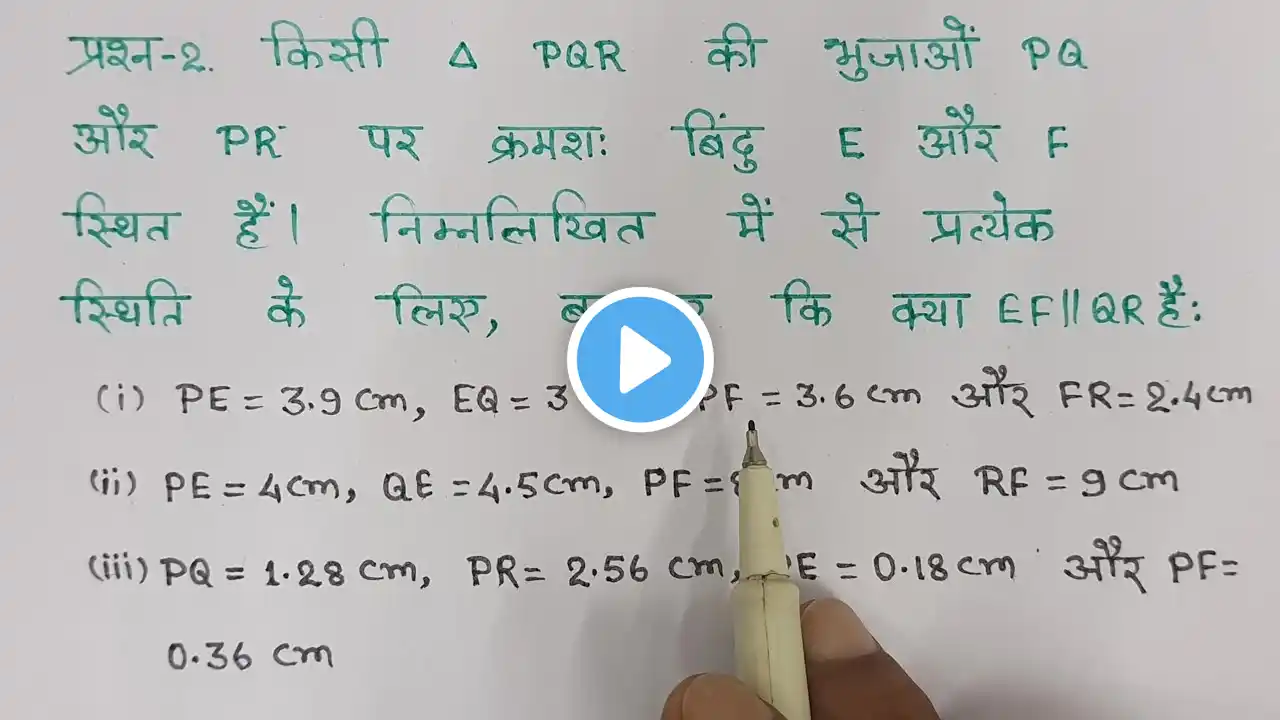 प्रश्न-2. किसी △ PQR की भुजाओं PQ
और PR पर क्रमशः बिंदु E और F
स्थित हैं। निम्नलिखित में से प्रत्येक
स्थिति के लिए, कि क्या EF||QR है:
(i) PE = 3.9 cm, EQ = 3 PF = 3.6 cm और FR = 2.4 cm
(ii) PE = 4 cm, QE = 4.5 cm, PF = cm और RF = 9 cm
(iii) PQ = 1.28 cm, PR = 2.56 cm, = 0.18 cm और PF =
0.36 cm